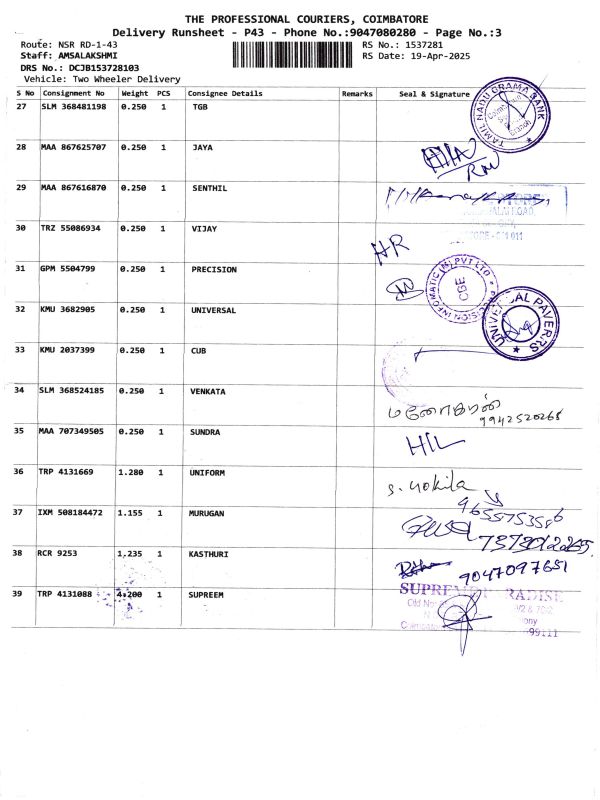 THE PROFESSIONAL COURIERS, COIMBATORE
Delivery Runsheet - P43 - Phone No.:9047080280 - Page No.:3
Route: NSR RD-1-43 RS No.: 1537281
Staff: AMSALAKSHMI RS Date: 19-Apr-2025
DRS No.: DCJB153728103
Vehicle: Two Wheeler Delivery
S No Consignment No Weight PCS Consignee Details Remarks Seal & Signature
27 SLM 368481198 0.250 1 TGB
TAMIL NADU GRAMA BANK
28 MAA 867625707 0.250 1 JAYA
29 MAA 867616870 0.250 1 SENTHIL
30 TRZ 55086934 0.250 1 VIJAY
HR
31 GPM 5504799 0.250 1 PRECISION
INFOMATIC (M) PVT LTD
CBE
32 KMU 3682905 0.250 1 UNIVERSAL
UNIVERSAL PAVERRS
33 KMU 2037399 0.250 1 CUB
34 SLM 368524185 0.250 1 VENKATA
மனோகரன்
9942520265
35 MAA 707349505 0.250 1 SUNDRA
36 TRP 4131669 1.280 1 UNIFORM
S. yokila
37 IXM 508184472 1.155 1 MURUGAN
38 RCR 9253 1,235 1 KASTHURI
9047097651
39 TRP 4131088 4.200 1 SUPREEM
99111